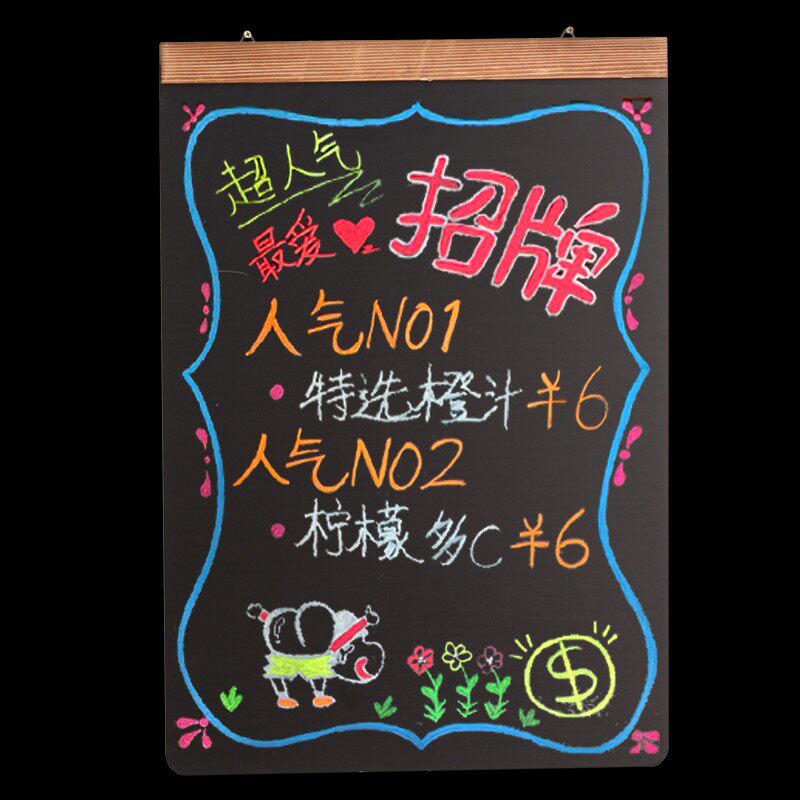 超人气
最爱
招牌
人气NO1
特选橙汁¥6
人气NO2
柠檬多C¥6
$